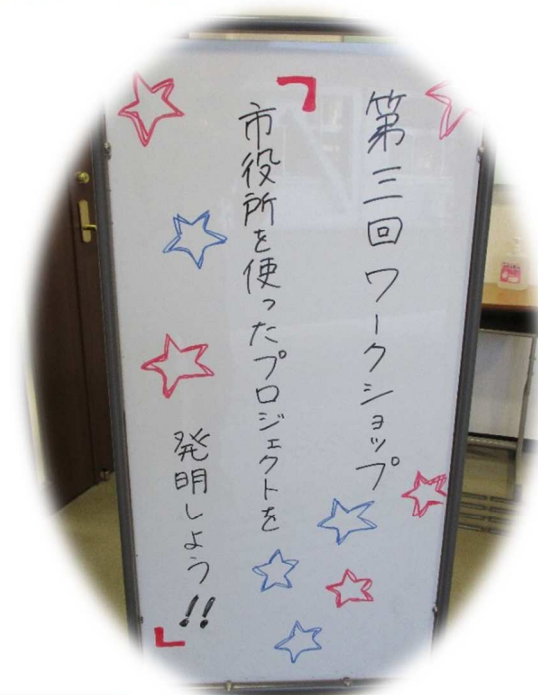 第三回ワークショップ
「市役所を使ったプロジェクトを
発明しよう!!」